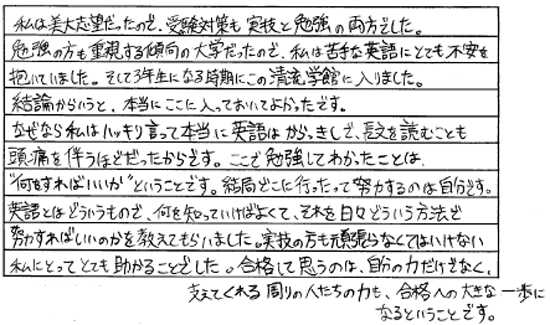 私は美大志望だったので、受験対策も実技と勉強の両方でした。
勉強の方も重視する傾向の大学だったので、私は苦手な英語にとても不安を
抱いていました。そして3年生になる時期にこの清流学館に入りました。
結論からいうと、本当にここに入っておいてよかったです。
なぜなら私はハッキリ言って本当に英語はからっきしで、長文を読むことも
頭痛を伴うほどだったからです。ここで勉強してわかったことは、
"何をすればいいか"ということです。結局どこに行ったって努力するのは自分です。
英語とはどういうもので、何を知っていけばよくて、それを日々どういう方法で
努力すればいいのかを教えてもらいました。実技の方も頑張らなくてはいけない
私にとってとても助かることでした。合格して思うのは、自分の力だけでなく、
支えてくれる周りの人たちの力も、合格への大きな一歩に
なるということです。